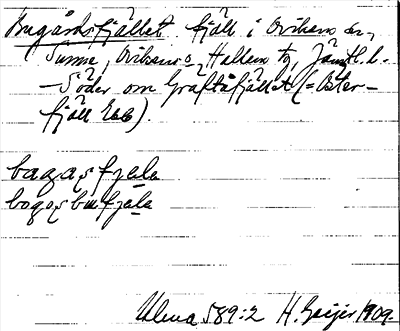 Bugårdsfjället fjäll i Ovikens sn,
Sunne, Ovikens o. Hallens tg, Jämtl. l.
Söder om Gräftåfjället (= Öster-
fjäll Eb6).
bagasfjele
bogosbufjele
Ulma 589:2 H. Geijer 1909.